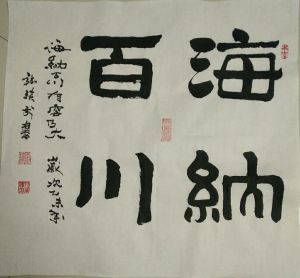 海納
百川
海納百川有容乃大 歲次乙未